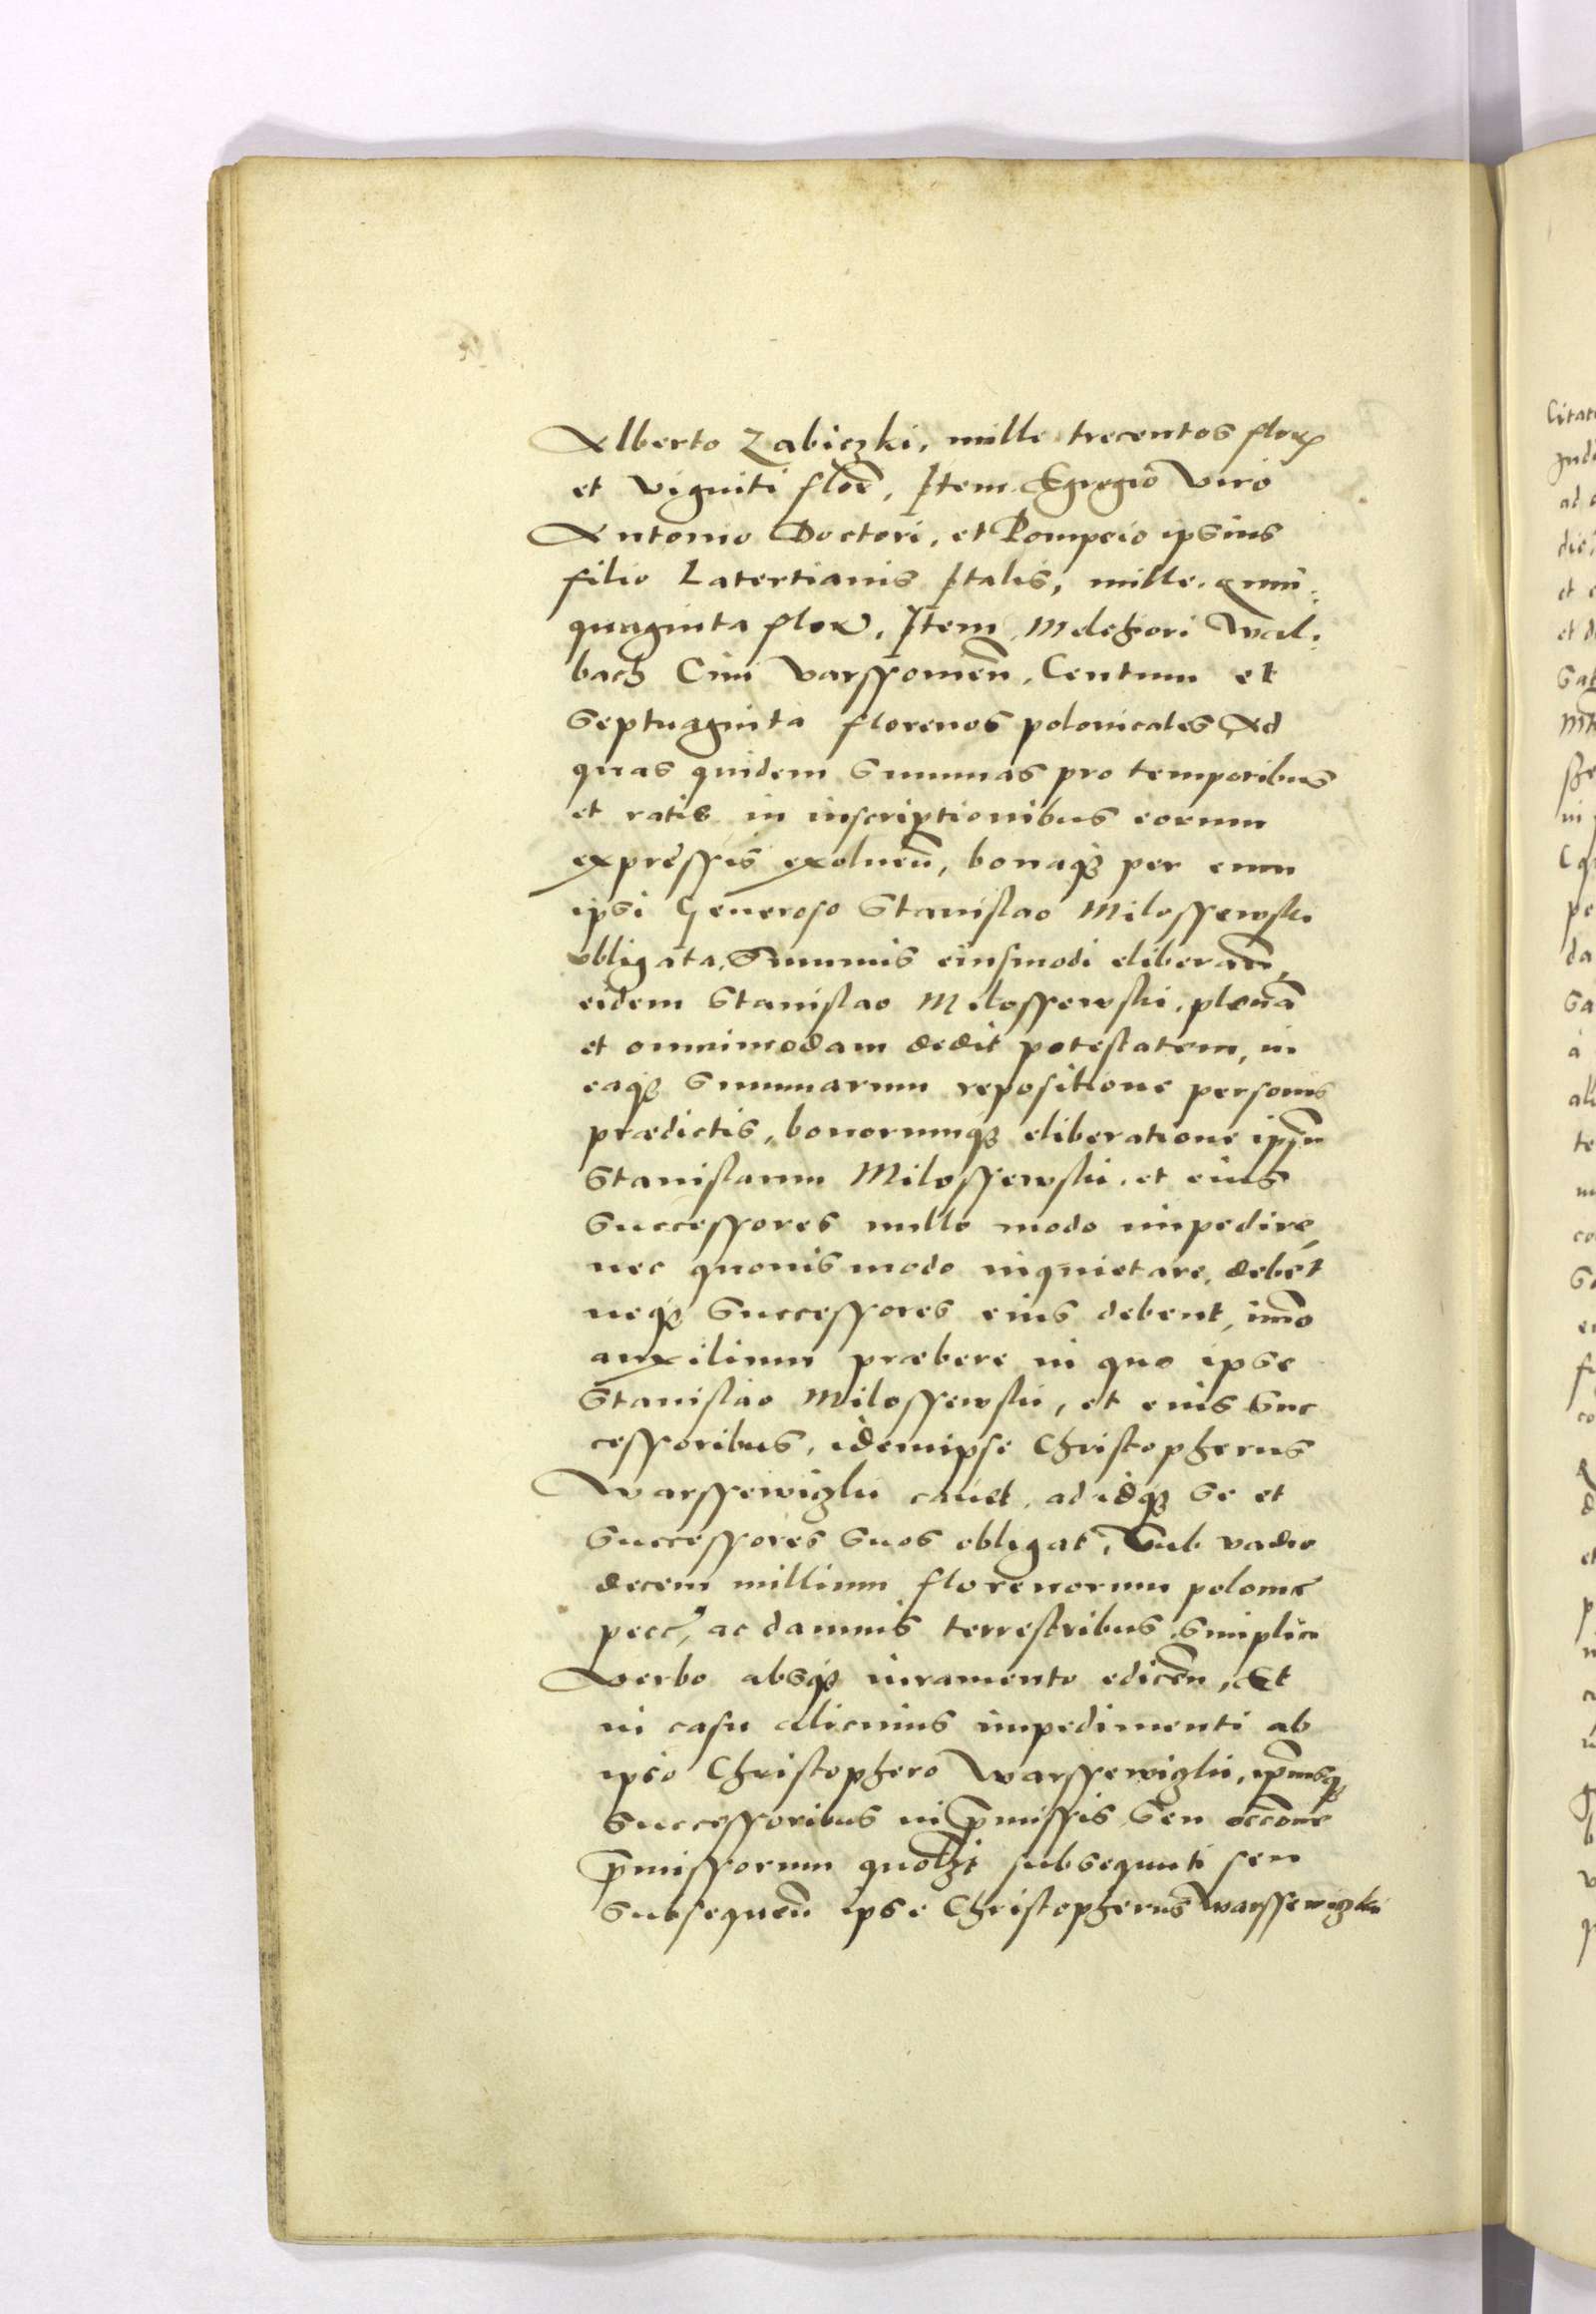 Alberto Zabiczki, mille trecentos flor
et viginti flor, Item Egregio viro
Antonio Doctori, et Pompeio ipsius
filio Latertianis Italis, mille quin:
quaginta flor, Item Melchiori Wal:
bach Civi varssovien, Centum et
septuaginta florenos polonicales, Ad
quas quidem summas pro temporibus
et ratis in inscriptionibus eorum
expressis exoluen, bonaqȝ per eum
ipsi Generoso Stanislao Milossewski
obligata, Summis eiusmodi eliberan,
eidem Stanislao Milossewski, plenā
et omnimodam dedit potestatem, in
eaqȝ summarum repositione personis
prædictis, bonorumqȝ eliberatione ipsū
Stanislaum Milossewski et eius
successores nullo modo impedire,
nec quovis modo inquietare, debet
neqȝ successores eius debent, imo
auxilium præbere in quo ipse
Stanislao Milossewski, et eius suc
cessoribus, idemipse Christopherus
Warssewiczki cavet, ad idqȝ se et
successores suos obligat, Sub vadio
decem millium florenorum polonic
pecc, ac damnis terrestribus simplici
verbo absqȝ iuramento edicen, Et
in casu alicuius impedimenti ab
ipso Christophero Warssewiczki, ipiusqȝ
successoribus in p̄missis seu occone
p̄missorum quolȝt subsequuti seu
subsequen ipse Christopherus Warssewiczki
Citat